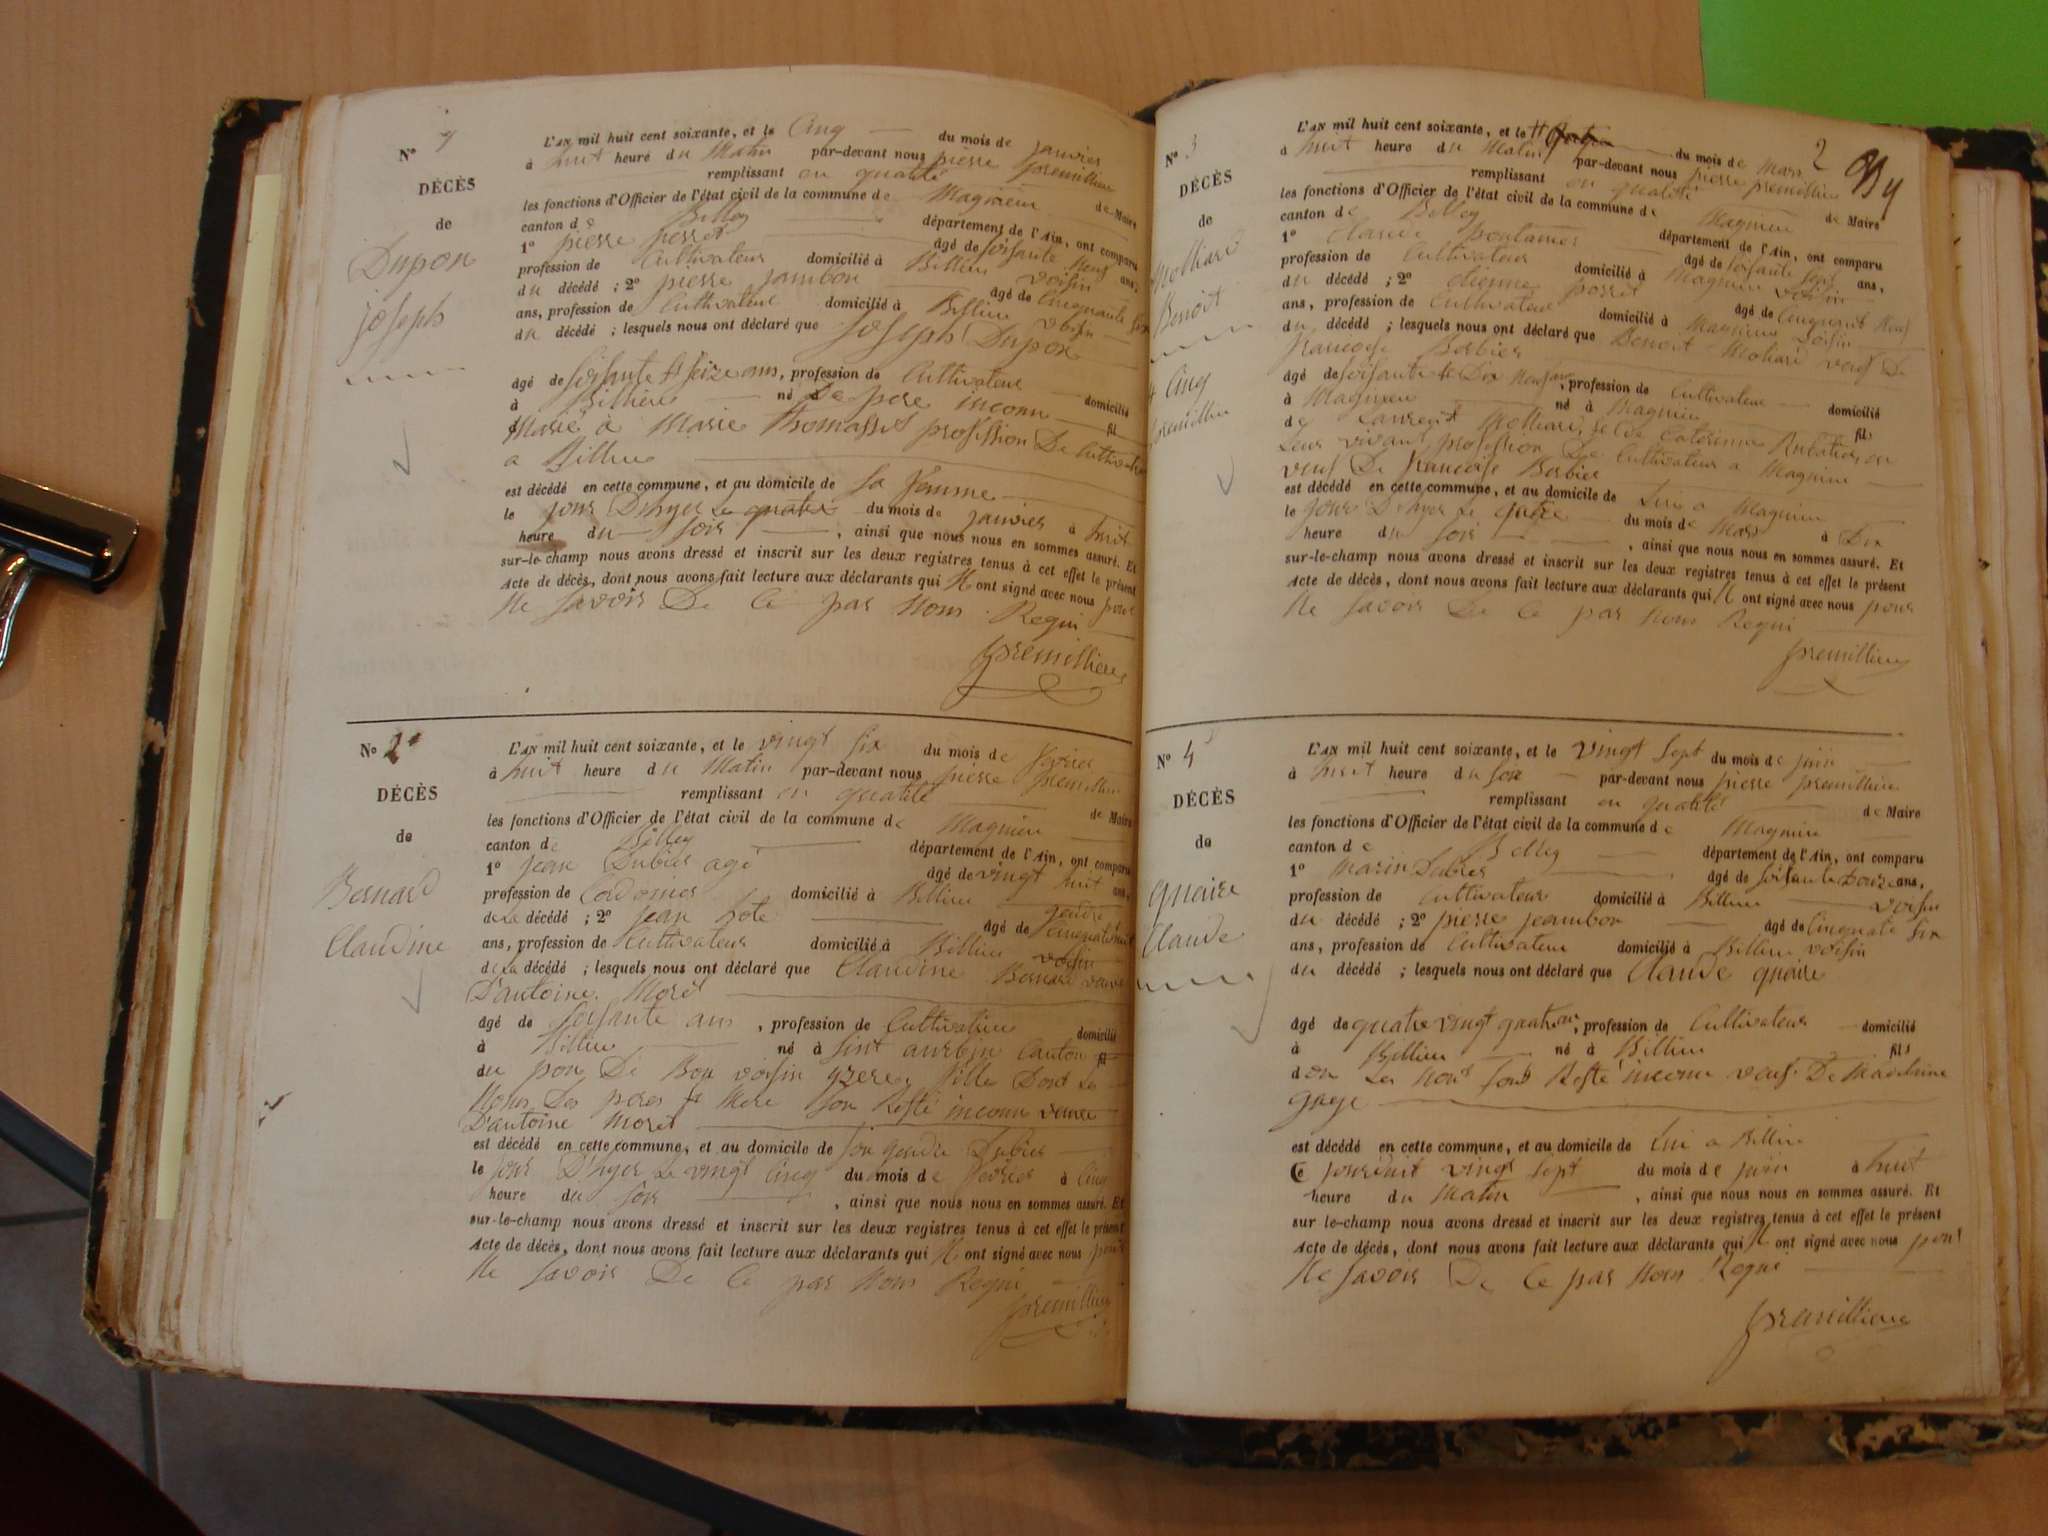 N° 1
DÉCÈS
de
Dupon
joseph
L'AN mil huit cent soixante, et le Cinq du mois de janvier
à huit heure du Matin par-devant nous pierre premillieu
remplissant en qualité de Maire
les fonctions d'Officier de l'état civil de la commune de Magnieu
canton de Belley département de l'Ain, ont comparu
1° pierre perret âgé de soisante Neuf ans,
profession de Cultivateur domicilié à Billieu voisin
du décédé ; 2° pierre jambon âgé de Cinquante six
ans, profession de Cultivateur domicilié à Billieu voisin
du décédé ; lesquels nous ont déclaré que joseph Dupon
âgé de soisante et seize ans, profession de Cultivateur domicilié
à Billieu né De pere inconu fil
Marié a Marie Thomasset profession De Cultivateur
a Billieu
est décédé en cette commune, et au domicile de sa femme
le jour D'hyer Le quatre du mois de janvier à huit
heure du soir , ainsi que nous nous en sommes assuré. Et
sur-le-champ nous avons dressé et inscrit sur les deux registres tenus à cet effet le présent
Acte de décès, dont nous avons fait lecture aux déclarants qui N ont signé avec nous pour
Ne savoir De Ce par Nous Requi
premillieu
N° 2
DÉCÈS
de
Bernard
Claudine
L'AN mil huit cent soixante, et le vingt six du mois de fevrier
à huit heure du Matin par-devant nous pierre premillieu
remplissant en qualité de Maire
les fonctions d'Officier de l'état civil de la commune de Magnieu
canton de Belley département de l'Ain, ont comparu
1° jean Dubier agé âgé de vingt huit ans,
profession de Cordonier domicilié à Billieu gendre
de La décédé ; 2° jean âgé de Cinquate huit
ans, profession de Cultivateur domicilié à Billieu voisin
de La décédé ; lesquels nous ont déclaré que Claudine Bernard veuve
D'antoine Moret
âgé de soisante ans , profession de Cultivateur domicilié
à Billieu né à sint Canton fil
du pon De Bon voisin yzere, fille Dont Les
Noms Des peres et Mere son Resté inconu veuve
D'antoine Moret
est décédé en cette commune, et au domicile de son gendre Dubier
le jour D'hyer Le vingt cinq du mois de fevrier à Cinq
heure du soir , ainsi que nous nous en sommes assuré. Et
sur-le-champ nous avons dressé et inscrit sur les deux registres tenus à cet effet le présent
Acte de décès, dont nous avons fait lecture aux déclarants qui N ont signé avec nous pour
Ne savoir De Ce par Nous Requi
premillieu
2
N° 3
DÉCÈS
de
Molliard
Benoit
Cinq
premillieu
L'AN mil huit cent soixante, et le du mois de Mars
à huit heure du Matin par-devant nous pierre premillieu
remplissant en qualité de Maire
les fonctions d'Officier de l'état civil de la commune de Magnieu
canton de Belley département de l'Ain, ont comparu
1° âgé de soisante sept ans,
profession de Cultivateur domicilié à Magnieu voisin
du décédé ; 2° etienne perret âgé de Cinquant Neuf
ans, profession de Cultivateur domicilié à Magnieu voisin
du décédé ; lesquels nous ont déclaré que Benoit Moliard veuf De
françoise Berbier
âgé de soisante et Dix Neuf ans, profession de Cultivateur domicilié
à Magnieu né à Magnieu fils
de Laurent Molliard, et de Caterinne en
Leur vivant profession De Cultivateur a Magnieu
veuf De françoise Berbier
est décédé en cette commune, et au domicile de Lui a Magnieu
le jour D'hyer Le quatre du mois de Mars à Dix
heure du soir , ainsi que nous nous en sommes assuré. Et
sur-le-champ nous avons dressé et inscrit sur les deux registres tenus à cet effet le présent
Acte de décès, dont nous avons fait lecture aux déclarants qui N ont signé avec nous pour
Ne savoir De Ce par Nous Requi
premillieu
N° 4
DÉCÈS
de
quaire
Claude
L'AN mil huit cent soixante, et le vingt sept du mois de juin
à huit heure du soir par-devant nous pierre premillieu
remplissant en qualité de Maire
les fonctions d'Officier de l'état civil de la commune de Magnieu
canton de Belley département de l'Ain, ont comparu
1° Marin Dubier âgé de soisante Douze ans,
profession de Cultivateur domicilié à Billieu voisin
du décédé ; 2° pierre jeambon âgé de Cinquate six
ans, profession de Cultivateur domicilié à Billieu voisin
du décédé ; lesquels nous ont déclaré que Claude quaire
âgé de quatre vingt quatre an, profession de Cultivateur domicilié
à Billieu né à Billieu fils
don Les Noms sont Resté inconu veuf De Madelaine
gage
est décédé en cette commune, et au domicile de Lui a Billieu
Ce jourduit vingt sept du mois de juin à huit
heure du Matin , ainsi que nous nous en sommes assuré. Et
sur le-champ nous avons dressé et inscrit sur les deux registres tenus à cet effet le présent
Acte de décès, dont nous avons fait lecture aux déclarants qui N ont signé avec nous pour
Ne savoir De Ce par Nous Requi
premillieu